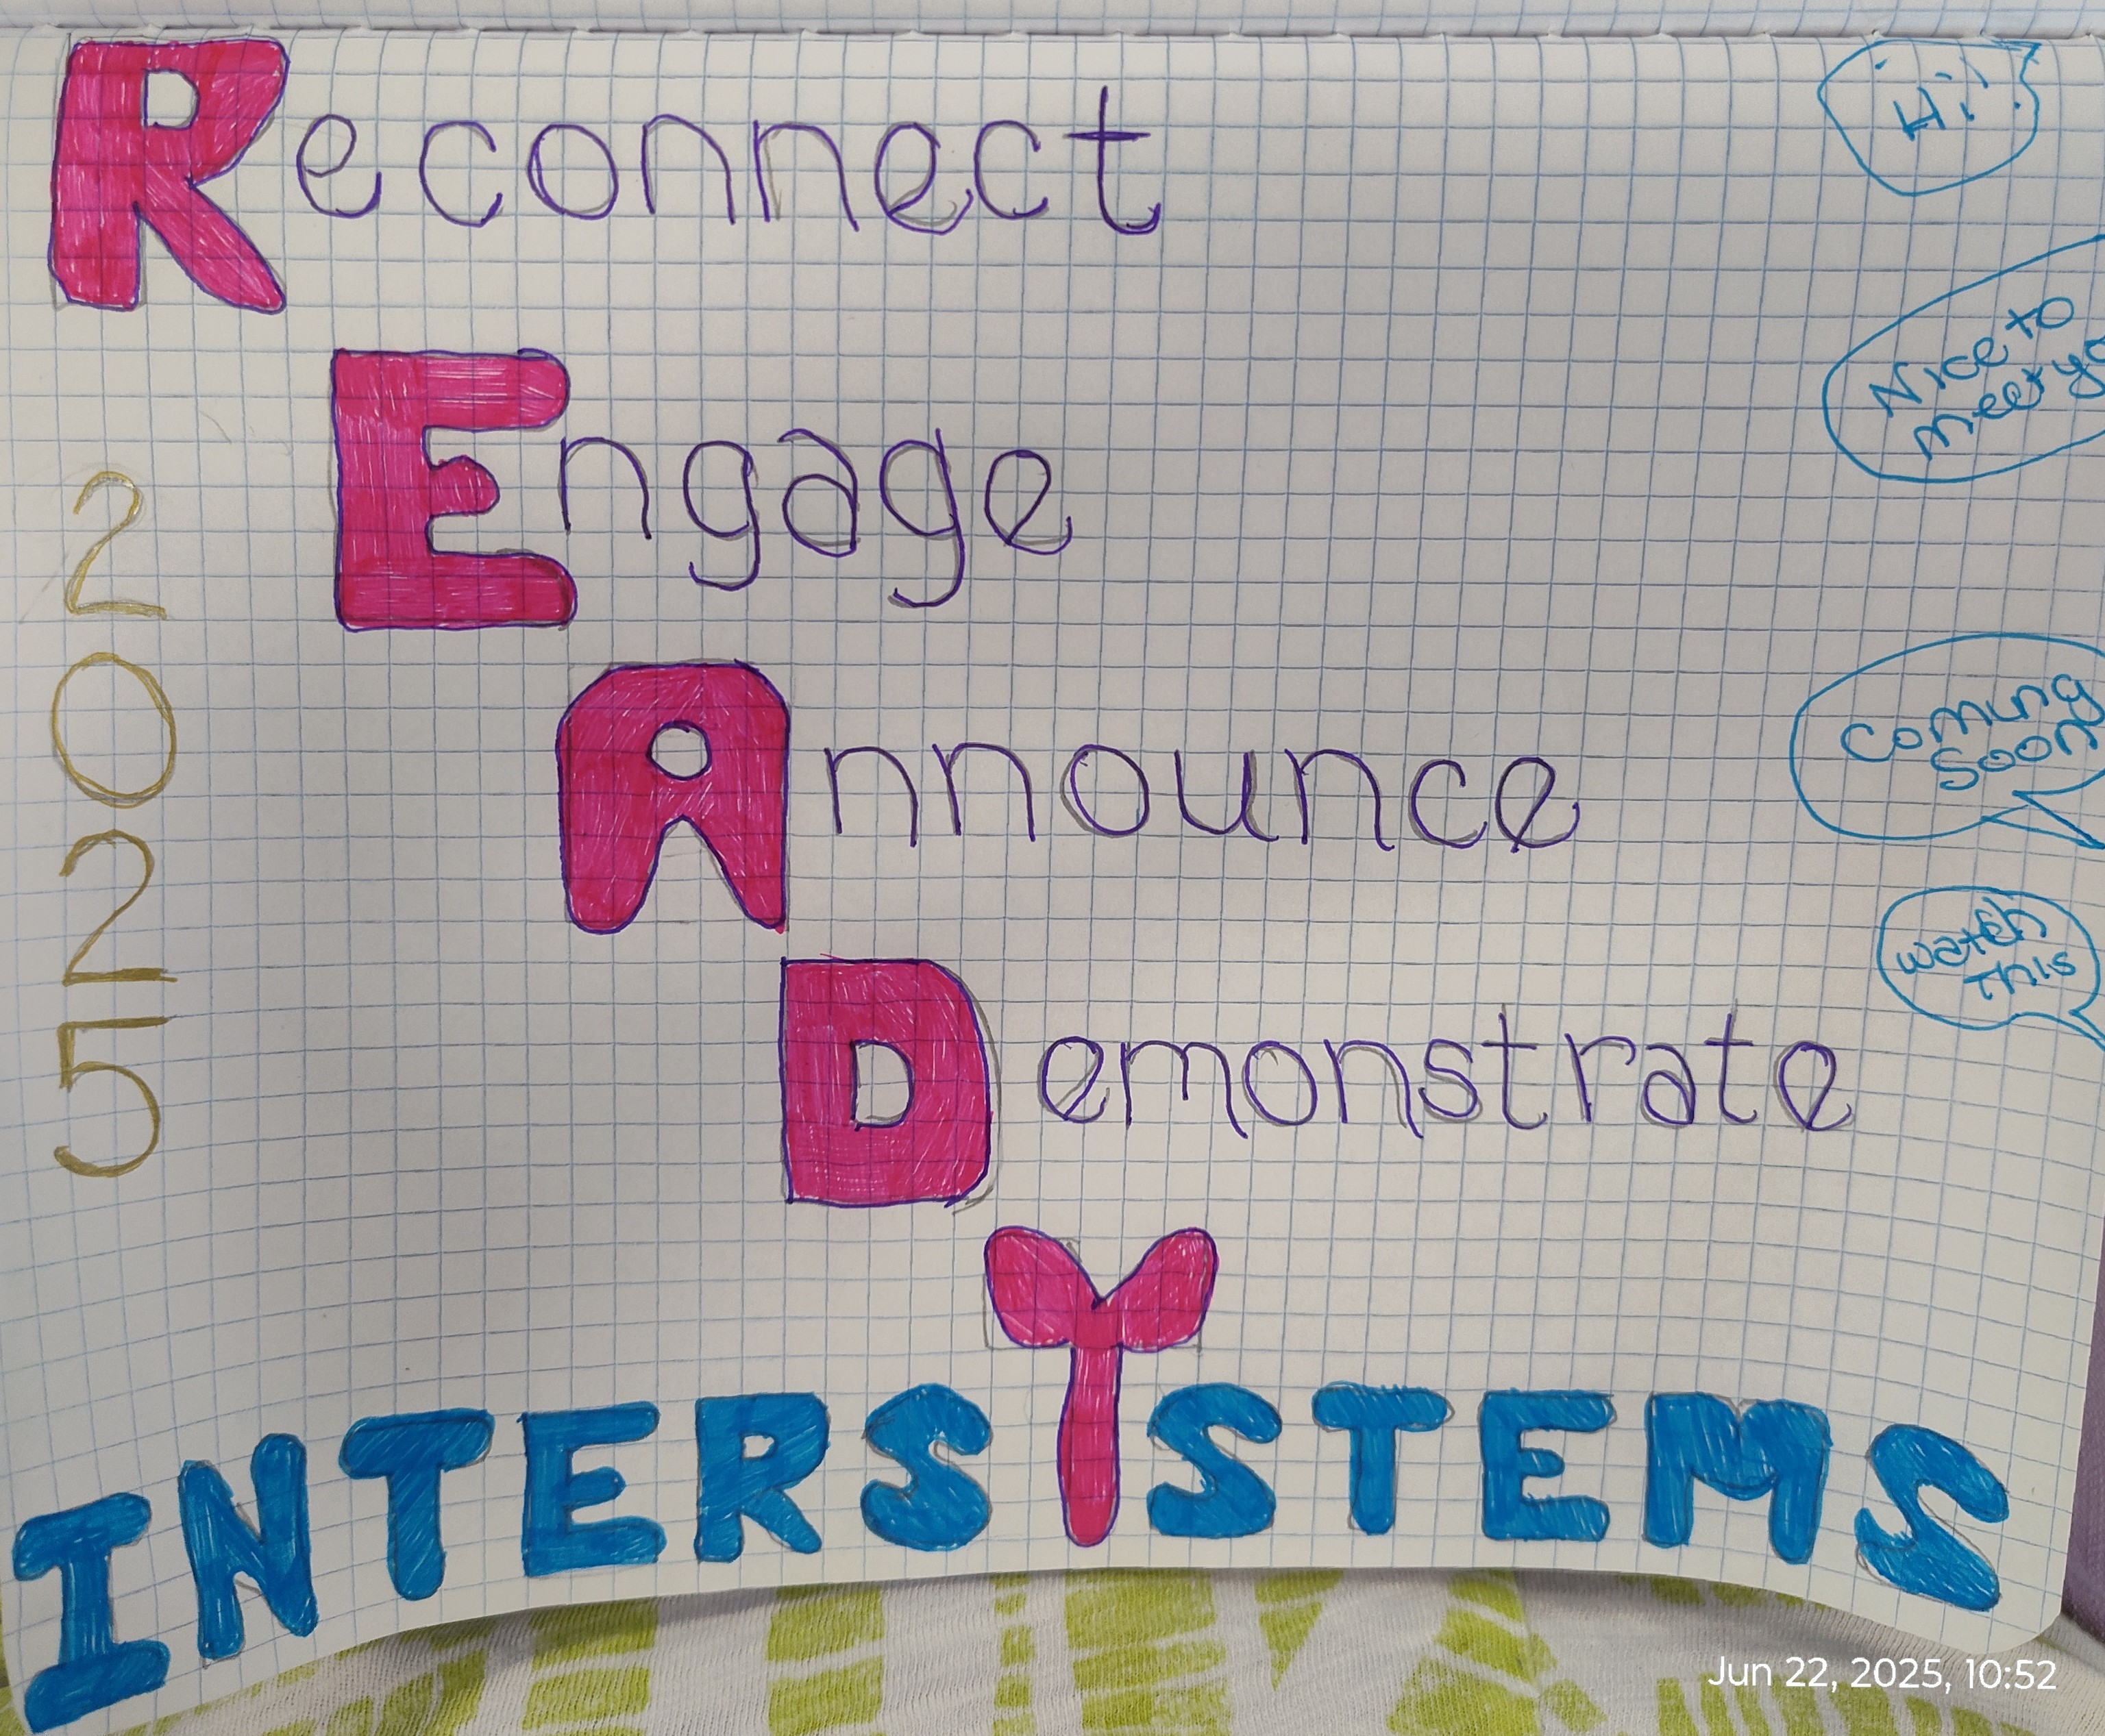 Reconnect
Hi!
Nice to
meet yo
Engage
2025
Announce
Coming
Soon
Watch
This
Demonstrate
INTERSYSTEMS
Jun 22, 2025, 10:52